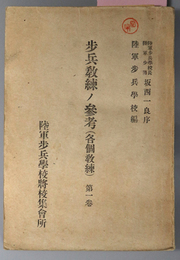 陸軍步兵學校長
陸軍步兵學校編
坂西一良序
步兵教練ノ參考(各個教練)第一卷
陸軍步兵學校將校集會所